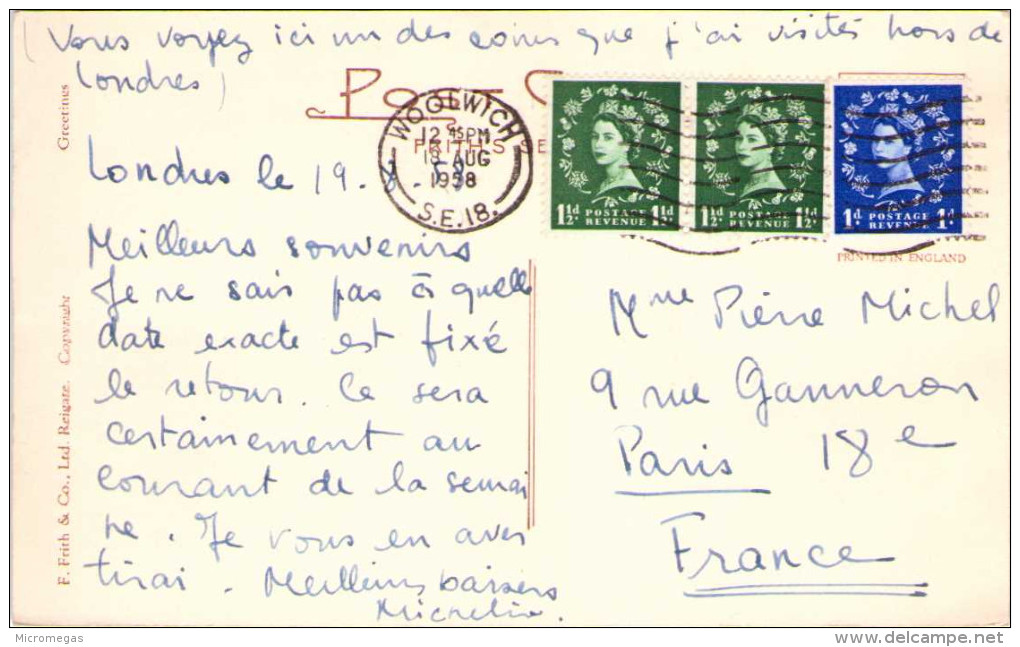 (Vous voyez ici un des coins que j'ai visités hors de
Londres)
POST C
FRITH'S SE
WOOLWICH
12 45 PM
18 AUG
1958
S.E.18.
1½d POSTAGE REVENUE 1½d
1½d POSTAGE REVENUE 1½d
1d. POSTAGE REVENUE 1d.
PRINTED IN ENGLAND
Greetings
F. Frith & Co., Ltd. Reigate. Copyright
Londres le 19.8.
Meilleurs souvenirs
Je ne sais pas à quelle
date exacte est fixé
le retour. Ce sera
certainement au
courant de la semai
ne. Je vous en aver
tirai. Meilleurs baisers
Micheline.
Mme Pierre Michel
9 rue Ganneron
Paris 18e
France
Micromegas
http://www.delcampe.net